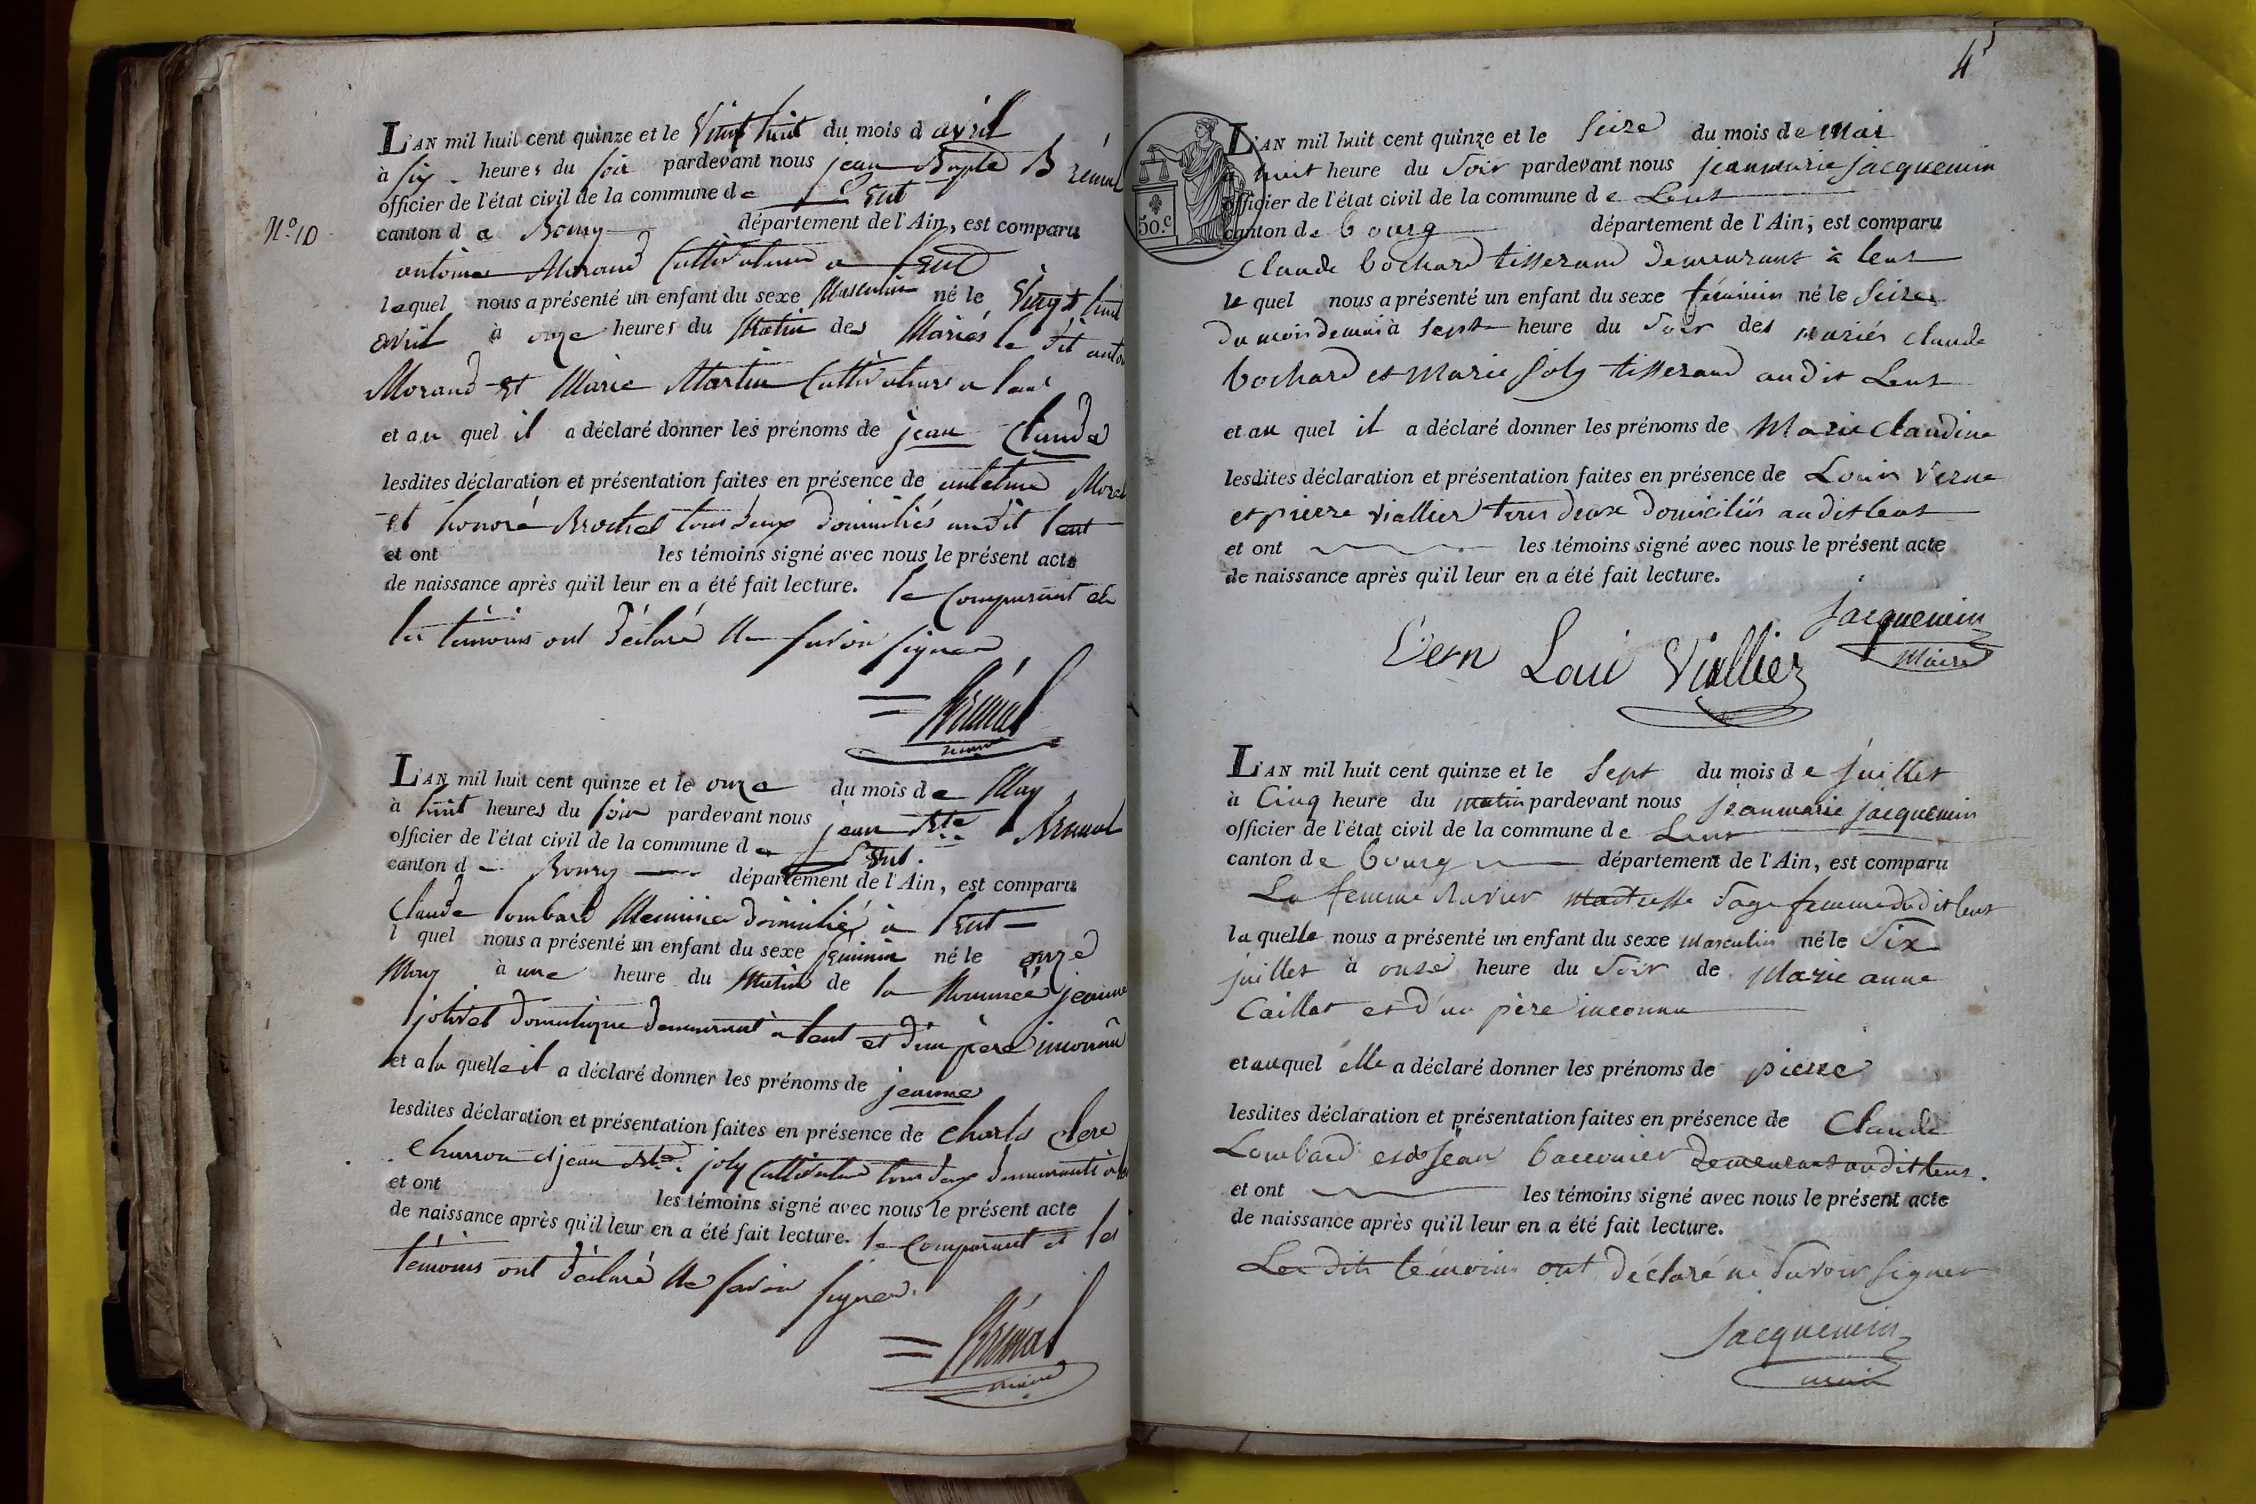 L'AN mil huit cent quinze et le Vingt huit du mois d avril
à six heures du soir pardevant nous jean Bapte Brémal
officier de l'état civil de la commune de Lent
N.º 10
canton de Bourg département de l'Ain, est comparu
antoine Morand Cultivateur a Lent
lequel nous a présenté un enfant du sexe Masculin né le Vingt huit
avril à onze heures du Matin des Mariés le dit antoine
Morand et Marie Martin Cultivateurs a lent
et au quel il a déclaré donner les prénoms de jean Claude
lesdites déclaration et présentation faites en présence de Morel
et honoré Brochet tous deux domiciliés audit lent
et ont les témoins signé avec nous le présent acte
de naissance après qu'il leur en a été fait lecture. le Comparant et
les témoins ont déclaré Ne savoir signer
Brémal
L'AN mil huit cent quinze et le onze du mois de May
à huit heures du soir pardevant nous jean Bte Brémal
officier de l'état civil de la commune de Lent
canton de Bourg département de l'Ain, est comparu
Claude lombard domicilié à Lent
l quel nous a présenté un enfant du sexe féminin né le onze
May à une heure du Matin de la Nommée jeanne
jolivet domestique demeurant à lent et d'un père inconnu
et a la quelle il a déclaré donner les prénoms de jeanne
lesdites déclaration et présentation faites en présence de Charles Clerc
Charron et jean Bte joly Cultivateur tous deux demeurants à
et ont les témoins signé avec nous le présent acte
de naissance après qu'il leur en a été fait lecture. le Comparant et les
témoins ont déclaré Ne savoir signer.
Brémal
4
50.c
L'AN mil huit cent quinze et le Seize du mois de mai
à huit heure du Soir pardevant nous jeanmarie jacquemin
officier de l'état civil de la commune de Lent
canton de bourg département de l'Ain, est comparu
Claude bochard tisserand demeurant à lent
le quel nous a présenté un enfant du sexe féminin né le Seize
du mois de mai à Sept heure du Soir des mariés claude
bochard et marie joly tisserand audit Lent
et au quel il a déclaré donner les prénoms de Marie Claudine
lesdites déclaration et présentation faites en présence de Louis Verne
et pierre viallier tous deux domiciliés audit lent
et ont les témoins signé avec nous le présent acte
de naissance après qu'il leur en a été fait lecture.
jacquemin
Maire
Vern Loui Viallier
L'AN mil huit cent quinze et le Sept du mois de juillet
à Cinq heure du matin pardevant nous jeanmarie jacquemin
officier de l'état civil de la commune de Lent
canton de bourg département de l'Ain, est comparu
La femme Ravier maitresse Sage femme dudit lent
la quelle nous a présenté un enfant du sexe masculin né le Six
juillet à onze heure du Soir de Marie anne
Caillat et d'un père inconnu
et au quel elle a déclaré donner les prénoms de pierre
lesdites déclaration et présentation faites en présence de Claude
Lombard et de Jean demeurant audit lent.
et ont les témoins signé avec nous le présent acte
de naissance après qu'il leur en a été fait lecture.
Les dits témoins ont déclaré ne Savoir Signer
Jacquemin
maire